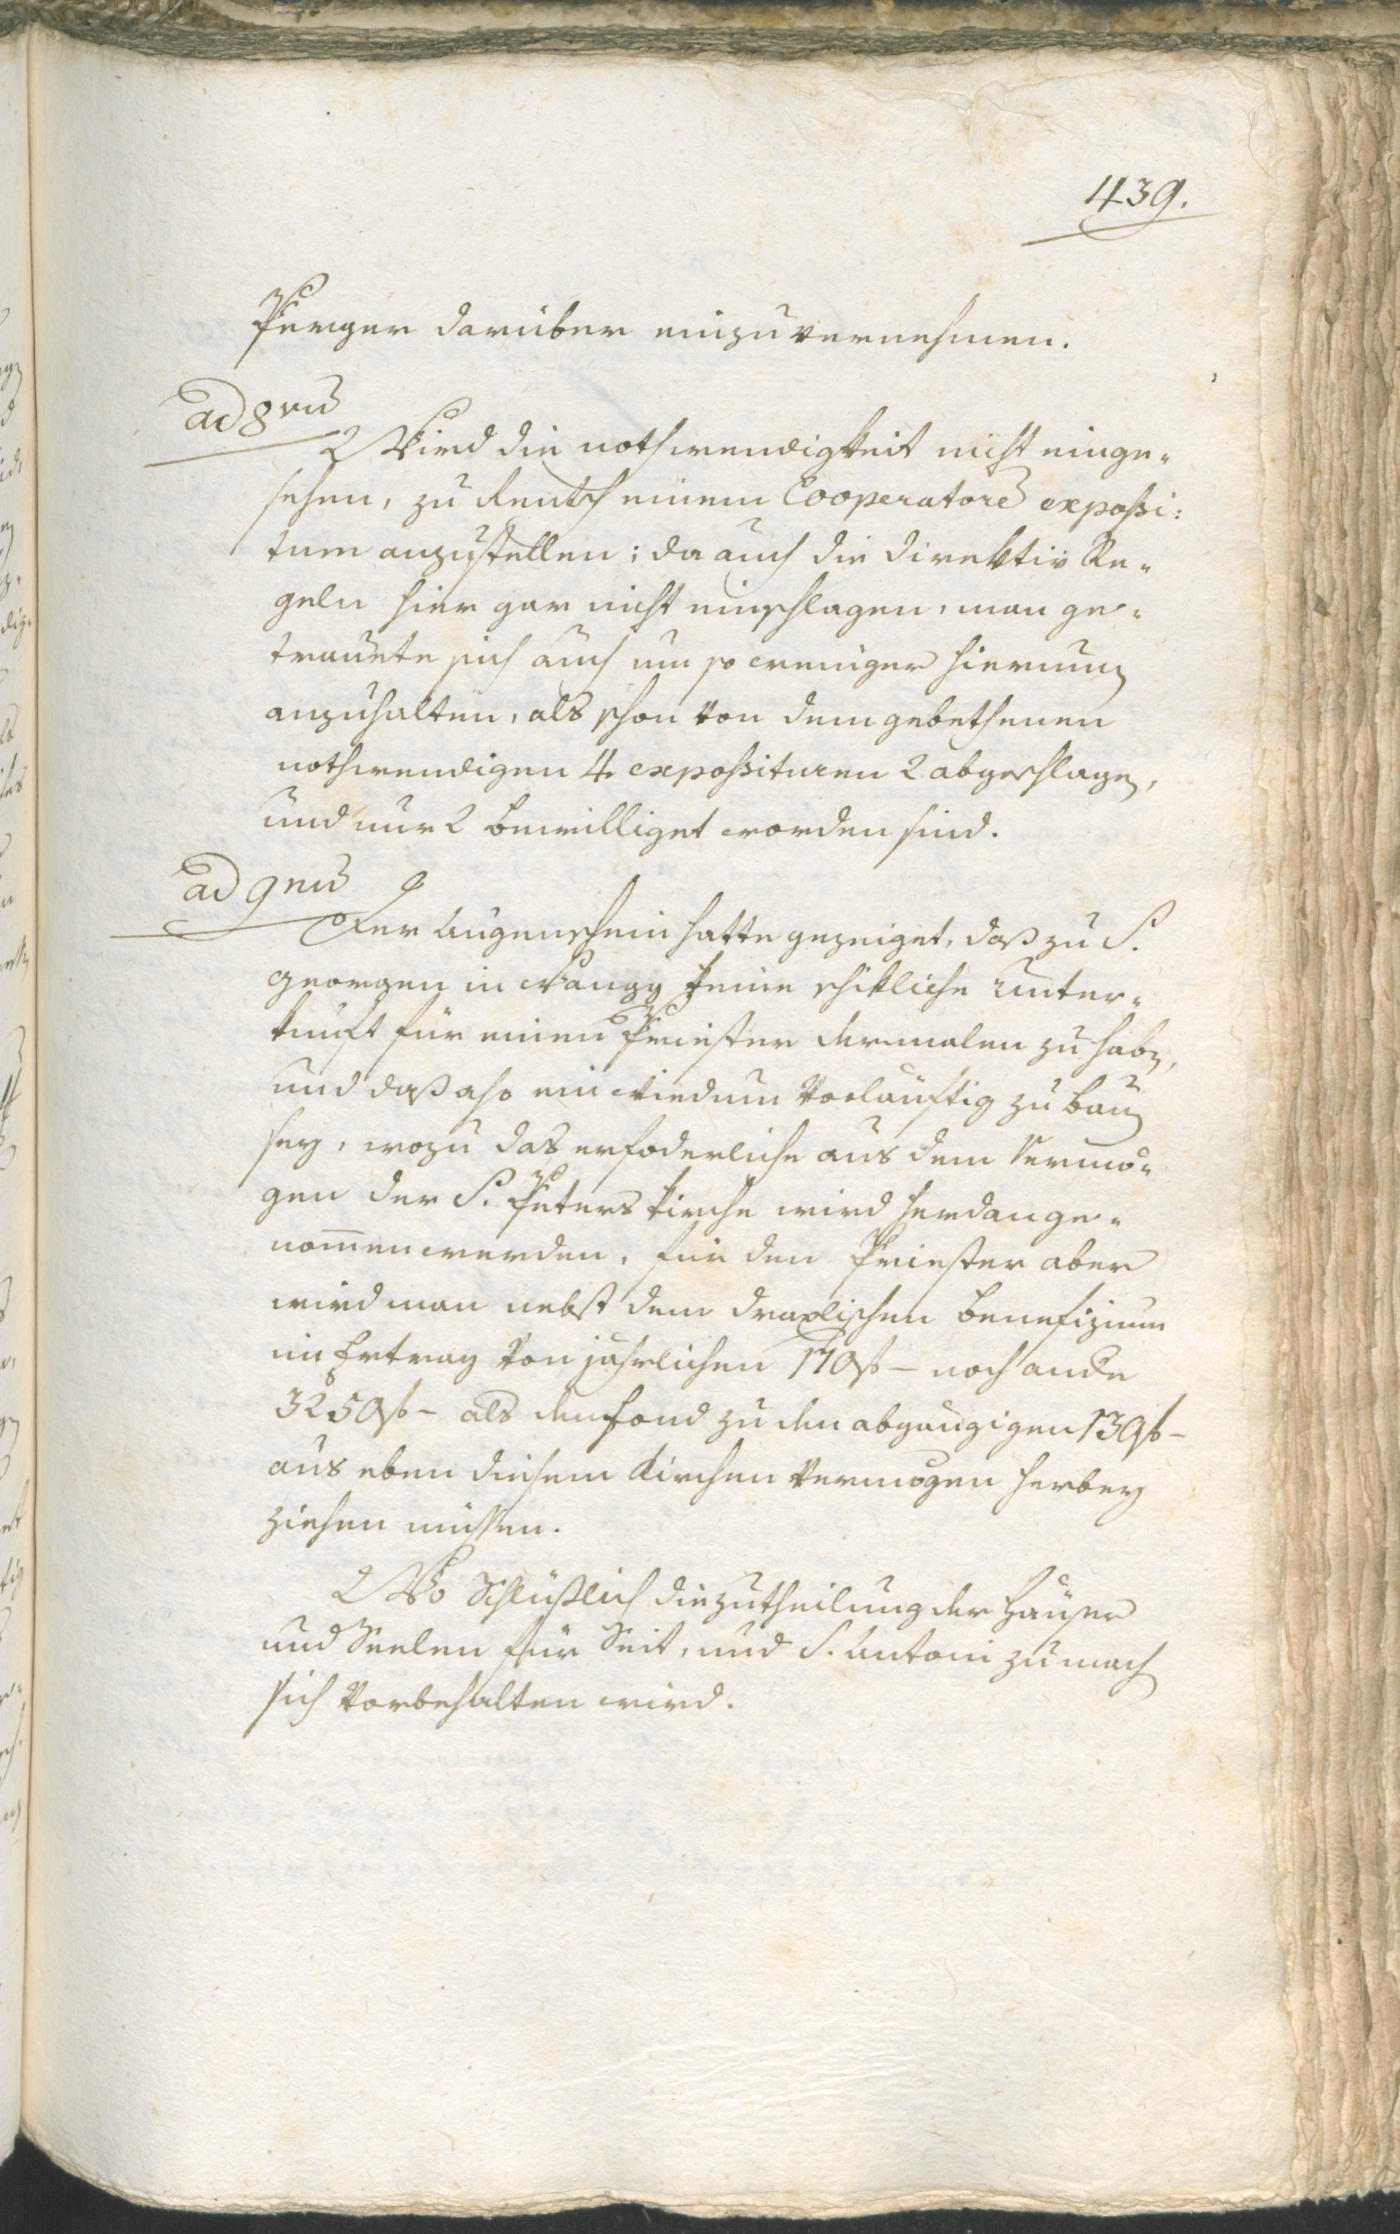 439.
Perger darüber einzuvernehmen.
ad 8vū
Wird die nothwendigkeit nicht einge-
sehen, zu Rentsch einem Cooperatorē expoßi:
tum anzustellen; da auch die direktiv Re-
geln hier gar nicht einschlagen, man ge-
trauete sich auch um so weniger hierum
anzuhalten, als schon von dem gebethenen
nothwendigen 4 expoßituren 2 abgeschlagen,
und nur 2 bewilliget worden sind.
ad 9nū
Der Augenschein hatte gezeiget, daß zu S.
Georgen in Wangg keine schikliche Unter-
kunft für einen Priester dermalen zu haben,
und daß also ein Wiedum vorläuftig zu bauen
sey, wozu das erfoderliche aus dem Vermö-
gen der S. Peters kirche wird herdange-
nom̄en werden, für den Priester aber
wird man nebst dem draxlischen Benefizium
im Ertrag von jährlichen 170 f – noch andre
3250 f – als den fond zu den abgängigen 130 f –
aus eben diesem Kirchen vermögen herbey
ziehen müssen.
Wo Schlüßlich die zutheilung der Häuser
und Seelen für Seit, und S. Antoni zu machen
sich vorbehalten wird.